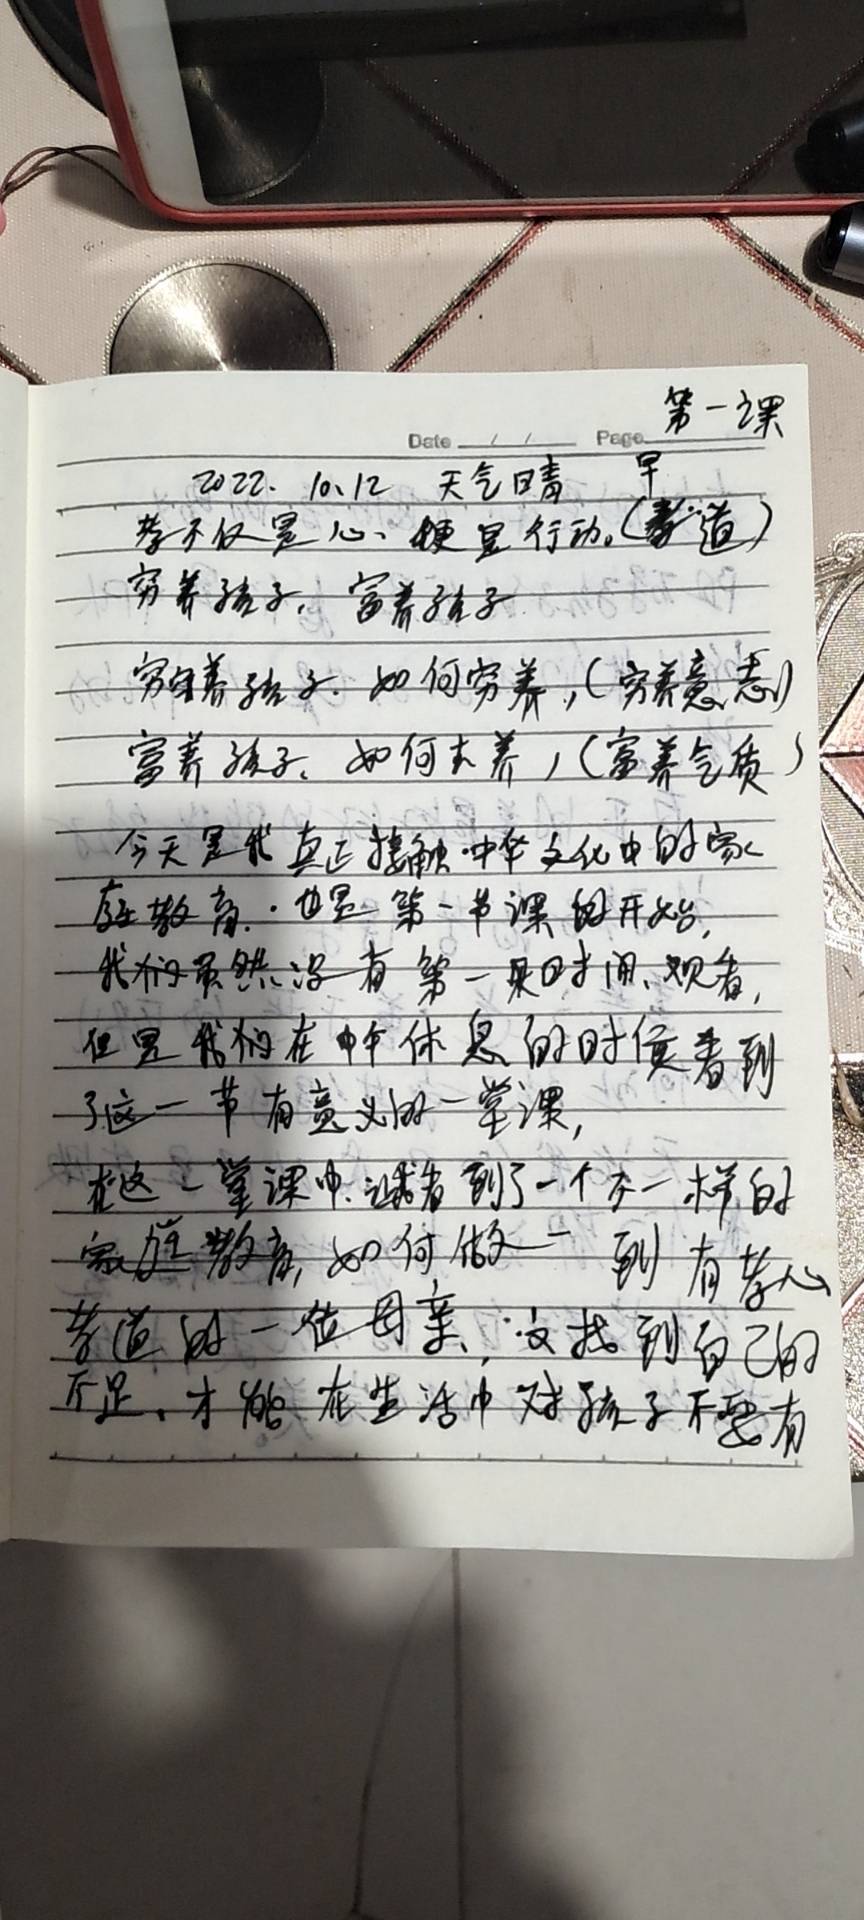 第一课
Date / / Page
2022.10.12 天气晴 早
孝不仅是心、梗是行动。(孝道)
穷养孩子,富养孩子
穷养孩子.如何穷养,(穷养意志)
富养孩子、如何去养,(富养气质)
今天是我真正接触.中华文化中的家
庭教育.也是第一节课的开始,
我们虽然没有第一时间、观看,
但是我们在中午休息的时候看到
了这一节有意义的一堂课,
在这一堂课中.让我看到了一个不一样的
家庭教育,如何做一到有孝心
孝道的一位母亲,找到自己的
不足、才能在生活中对孩子不要有